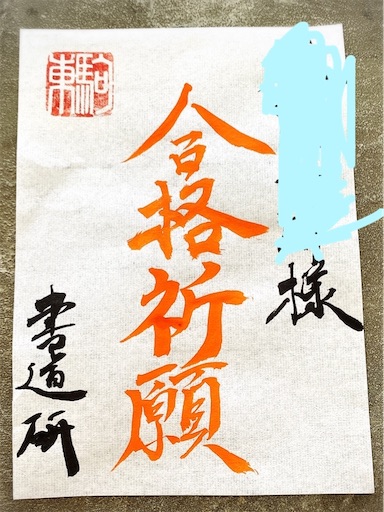 様
合格祈願
駒東
書道研